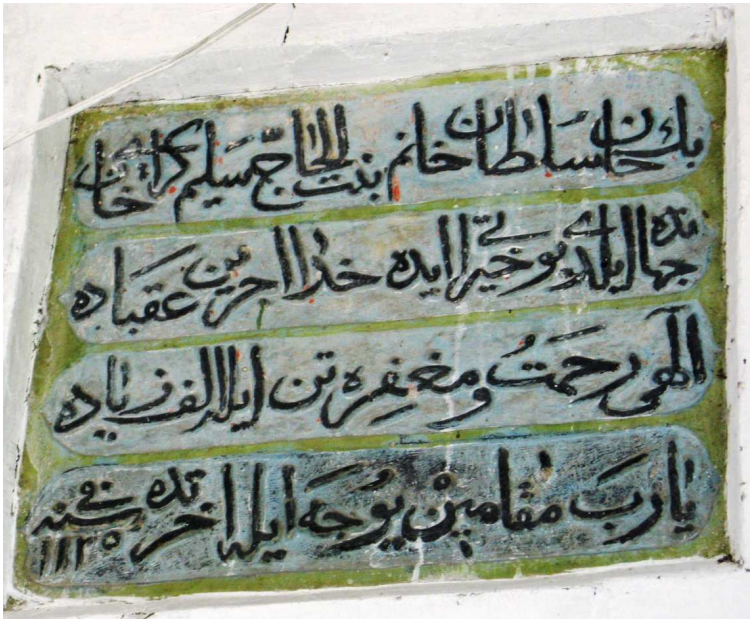 بك خان سلطان خانم بنت الحاج سليم كراى خان
جهانده ايلدى بو خيرا ايده خدا اجرين عقباده
الهى رحمت و مغفرتن ايله الف زياده
يارب مقامين يوجه ايله اخرتده فى سنه ١١٢٥